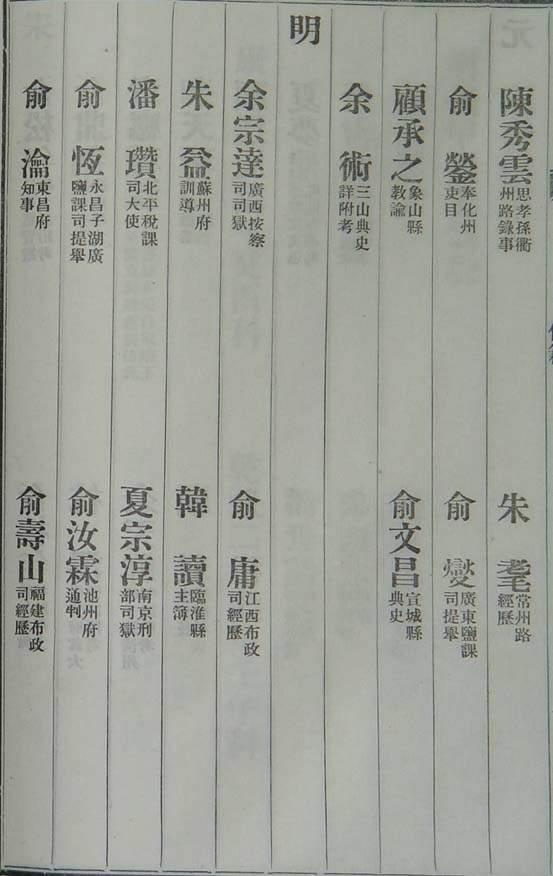 陳秀雲 思孝孫衢州路錄事
朱耄 常州路經歷
俞鎣 奉化州吏目
俞燮 廣東鹽課司提舉
顧承之 象山縣教諭
俞文昌 宣城縣典史
余術 三山典史詳附考
明
余宗達 廣西按察司司獄
俞庸 江西布政司經歷
朱益 蘇州府訓導
韓讀 臨淮縣主簿
潘瓚 北平稅課司大使
夏宗淳 南京刑部司獄
俞恆 永昌子湖廣鹽課司提舉
俞汝霖 池州府通判
俞瀹 東昌府知事
俞壽山 福建布政司經歷